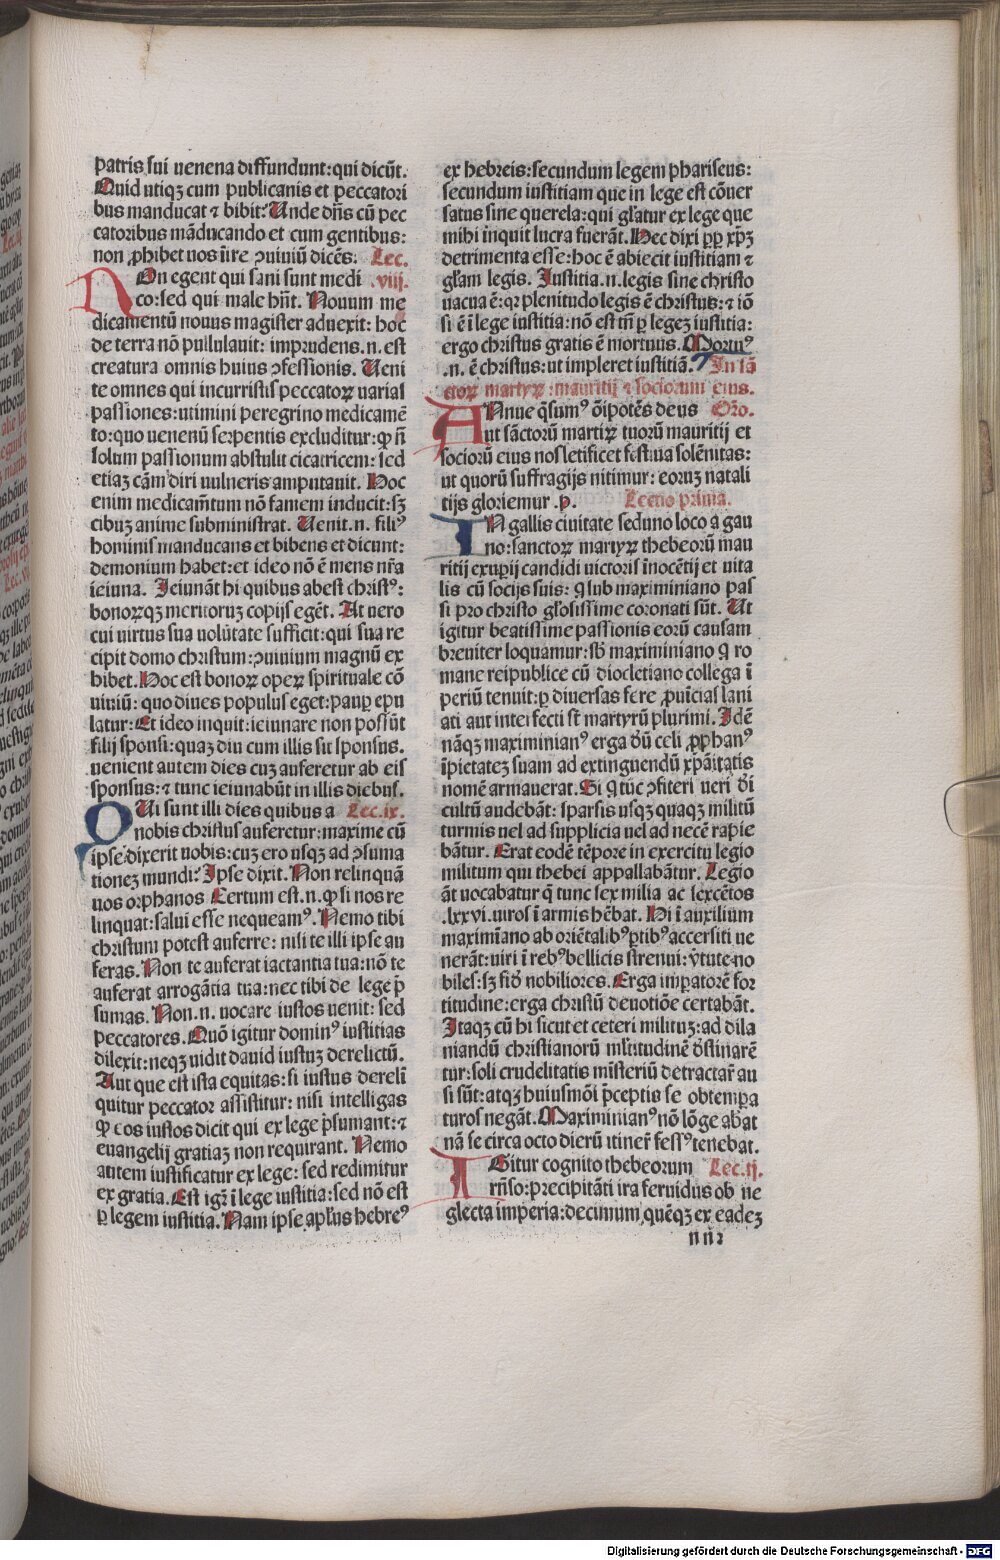 patris sui uenena diffundunt: qui dicūt.
Quid utiqꝫ cum publicanis et peccatori
bus manducat ⁊ bibit? Unde dn̄s cū pec
catoribus māducando et cum gentibus:
non ꝓhibet nos īire ꝯuiuiū dicēs. Lec.
NOn egent qui sani sunt medi .viij.
co: sed qui male hn̄t. Nouum me
dicamentū nouus magister aduexit: hoc
de terra nō pullulauit: imprudens .n. est
creatura omnis huius ꝓfessionis. Ueni
te omnes qui incurristis peccatoꝝ uarias
passiones: utimini peregrino medicamē
to: quo uenenū serpentis excluditur: ꝙ n̄
solum passionum abstulit cicatricem: sed
etiaꝫ cām diri uulneris amputauit. Hoc
enim medicam̄tum nō famem inducit: sꝫ
cibuꝫ anime subministrat. Uenit .n. filiꝰ
hominis manducans et bibens et dicunt:
demonium habet: et ideo nō ē mens nr̄a
ieiuna. Ieiunāt hi quibus abest christꝰ:
bonoꝝqꝫ meritoruꝫ copijs egēt. At uero
cui uirtus sua uolūtate sufficit: qui sua re
cipit domo christum: ꝯuiuium magnū ex
hibet. Hoc est bonoꝝ operꝫ spirituale cō
uiuiū: quo diues populus eget: paup̄ epu
latur: Et ideo inquit: ieiunare non possūt
filij sponsi: quaꝫ diu cum illis sit sponsus.
uenient autem dies cuꝫ auferetur ab eis
sponsus: ⁊ tunc ieiunabūt in illis diebus.
QUi sunt illi dies quibus a Lec.ix.
nobis christus auferetur: maxime cū
ipse dixerit uobis: cuꝫ ero usqꝫ ad ꝯsuma
tioneꝫ mundi? Ipse dixit. Non relinquā
uos orphanos Certum est .n. ꝙ si nos re
linquat: salui esse nequeamꝰ. Nemo tibi
christum potest auferre: nisi te illi ipse au
feras. Non te auferat iactantia tua: nō te
auferat arrogātia tua: nec tibi de lege p̄
sumas. Non .n. uocare iustos uenit: sed
peccatores. Quō igitur dominꝰ iustitias
dilexit: neqꝫ uidit dauid iustuꝫ derelictū.
Aut que est ista equitas: si iustus derelī
quitur peccator assistitur: nisi intelligas
ꝙ eos iustos dicit qui ex lege p̄sumant: ⁊
euangelij gratiaꝫ non requirant. Nemo
autem iustificatur ex lege: sed redimitur
ex gratia. Est igꝫ ī lege iustitia: sed nō est
ꝑ legem iustitia. Nam ipse apl̄us hebreꝰ
ex hebreis: secundum legem phariseus:
secundum iustitiam que in lege est cōuer
satus sine querela: qui gl̄atur ex lege que
mihi inquit lucra fuerāt. Hec dixi ꝓp xp̄ꝫ
detrimenta esse: hoc ē abieci iustitiam ⁊
gl̄am legis. Iustitia .n. legis sine christo
uacua ē: qꝛ plenitudo legis ē christus: ⁊ iō
si ē ī lege iustitia: nō est tn̄ ꝑ legeꝫ iustitia:
ergo christus gratis ē mortuus. Mortuꝰ
.n. ē christus: ut impleret iustitiā. In sā
ctoꝝ martyꝝ: mauritij ⁊ sociorum eius.
ANnue q̄sumꝰ ōipotēs deus Oro.
ut sāctorū martiꝝ tuorū mauritij et
sociorū eius nos letificet festiua solēnitas:
ut quorū suffragijs nitimur: eoruꝫ natali
tijs gloriemur .p. Lectio prima.
IN gallis ciuitate seduno loco agau
no: sanctoꝝ martyꝝ thebeorū mau
ritij exuperij candidi uictoris īnocētij et uita
lis cū socijs suis: q̄ sub maximiniano pas
si pro christo gl̄osissime coronati sūt. Ut
igitur beatissime passionis eorū causam
breuiter loquamur: sb̄ maximiniano q̄ ro
mane reipublice cū diocletiano collega ī
periū tenuit: ꝑ diuersas fere ꝓuīcias lani
ati aut interfecti st̄ martyrū plurimi. Idē
nāqꝫ maximinianꝰ erga dn̄ celi ꝓphanꝰ
īpietateꝫ suam ad extinguendū xp̄aītatis
nomē armauerat. Si q̄ tūc ꝯfiteri ueri dī
cultū audebāt: sparsis usqꝫ quaqꝫ militū
turmis uel ad supplicia uel ad necē rapie
bātur. Erat eodē tēpore in exercitu legio
militum qui thebei appallabātur. Legio
āt uocabatur q̄ tunc sex milia ac sexcētos
.lxxvi. uiros ī armis hēbat. Hi ī auxilium
maximīano ab oriētalibꝰ ꝑtibꝰ accersiti ue
nerāt: uiri ī rebꝰ bellicis strenui: v̄tute no
biles: sꝫ fid̄ nobiliores. Erga īmpatorē for
titudine: erga christū deuotiōe certabāt.
Itaqꝫ cū hi sicut et ceteri milituꝫ: ad dila
niandū christianorū ml̄titudinē d̄stinarē
tur: soli crudelitatis mīsteriū detractar̄ au
si sūt: atqꝫ huiusmōi p̄ceptis se obtemꝑa
turos negāt. Maximinianꝰ nō lōge abat
nā se circa octo dierū itiner̄ fessꝰ tenebat.
IGitur cognito thebeorum Lec.ij.
rn̄so: precipitāti ira feruidus ob ne
glecta imperia: decimum quēqꝫ ex eadeꝫ
nnı